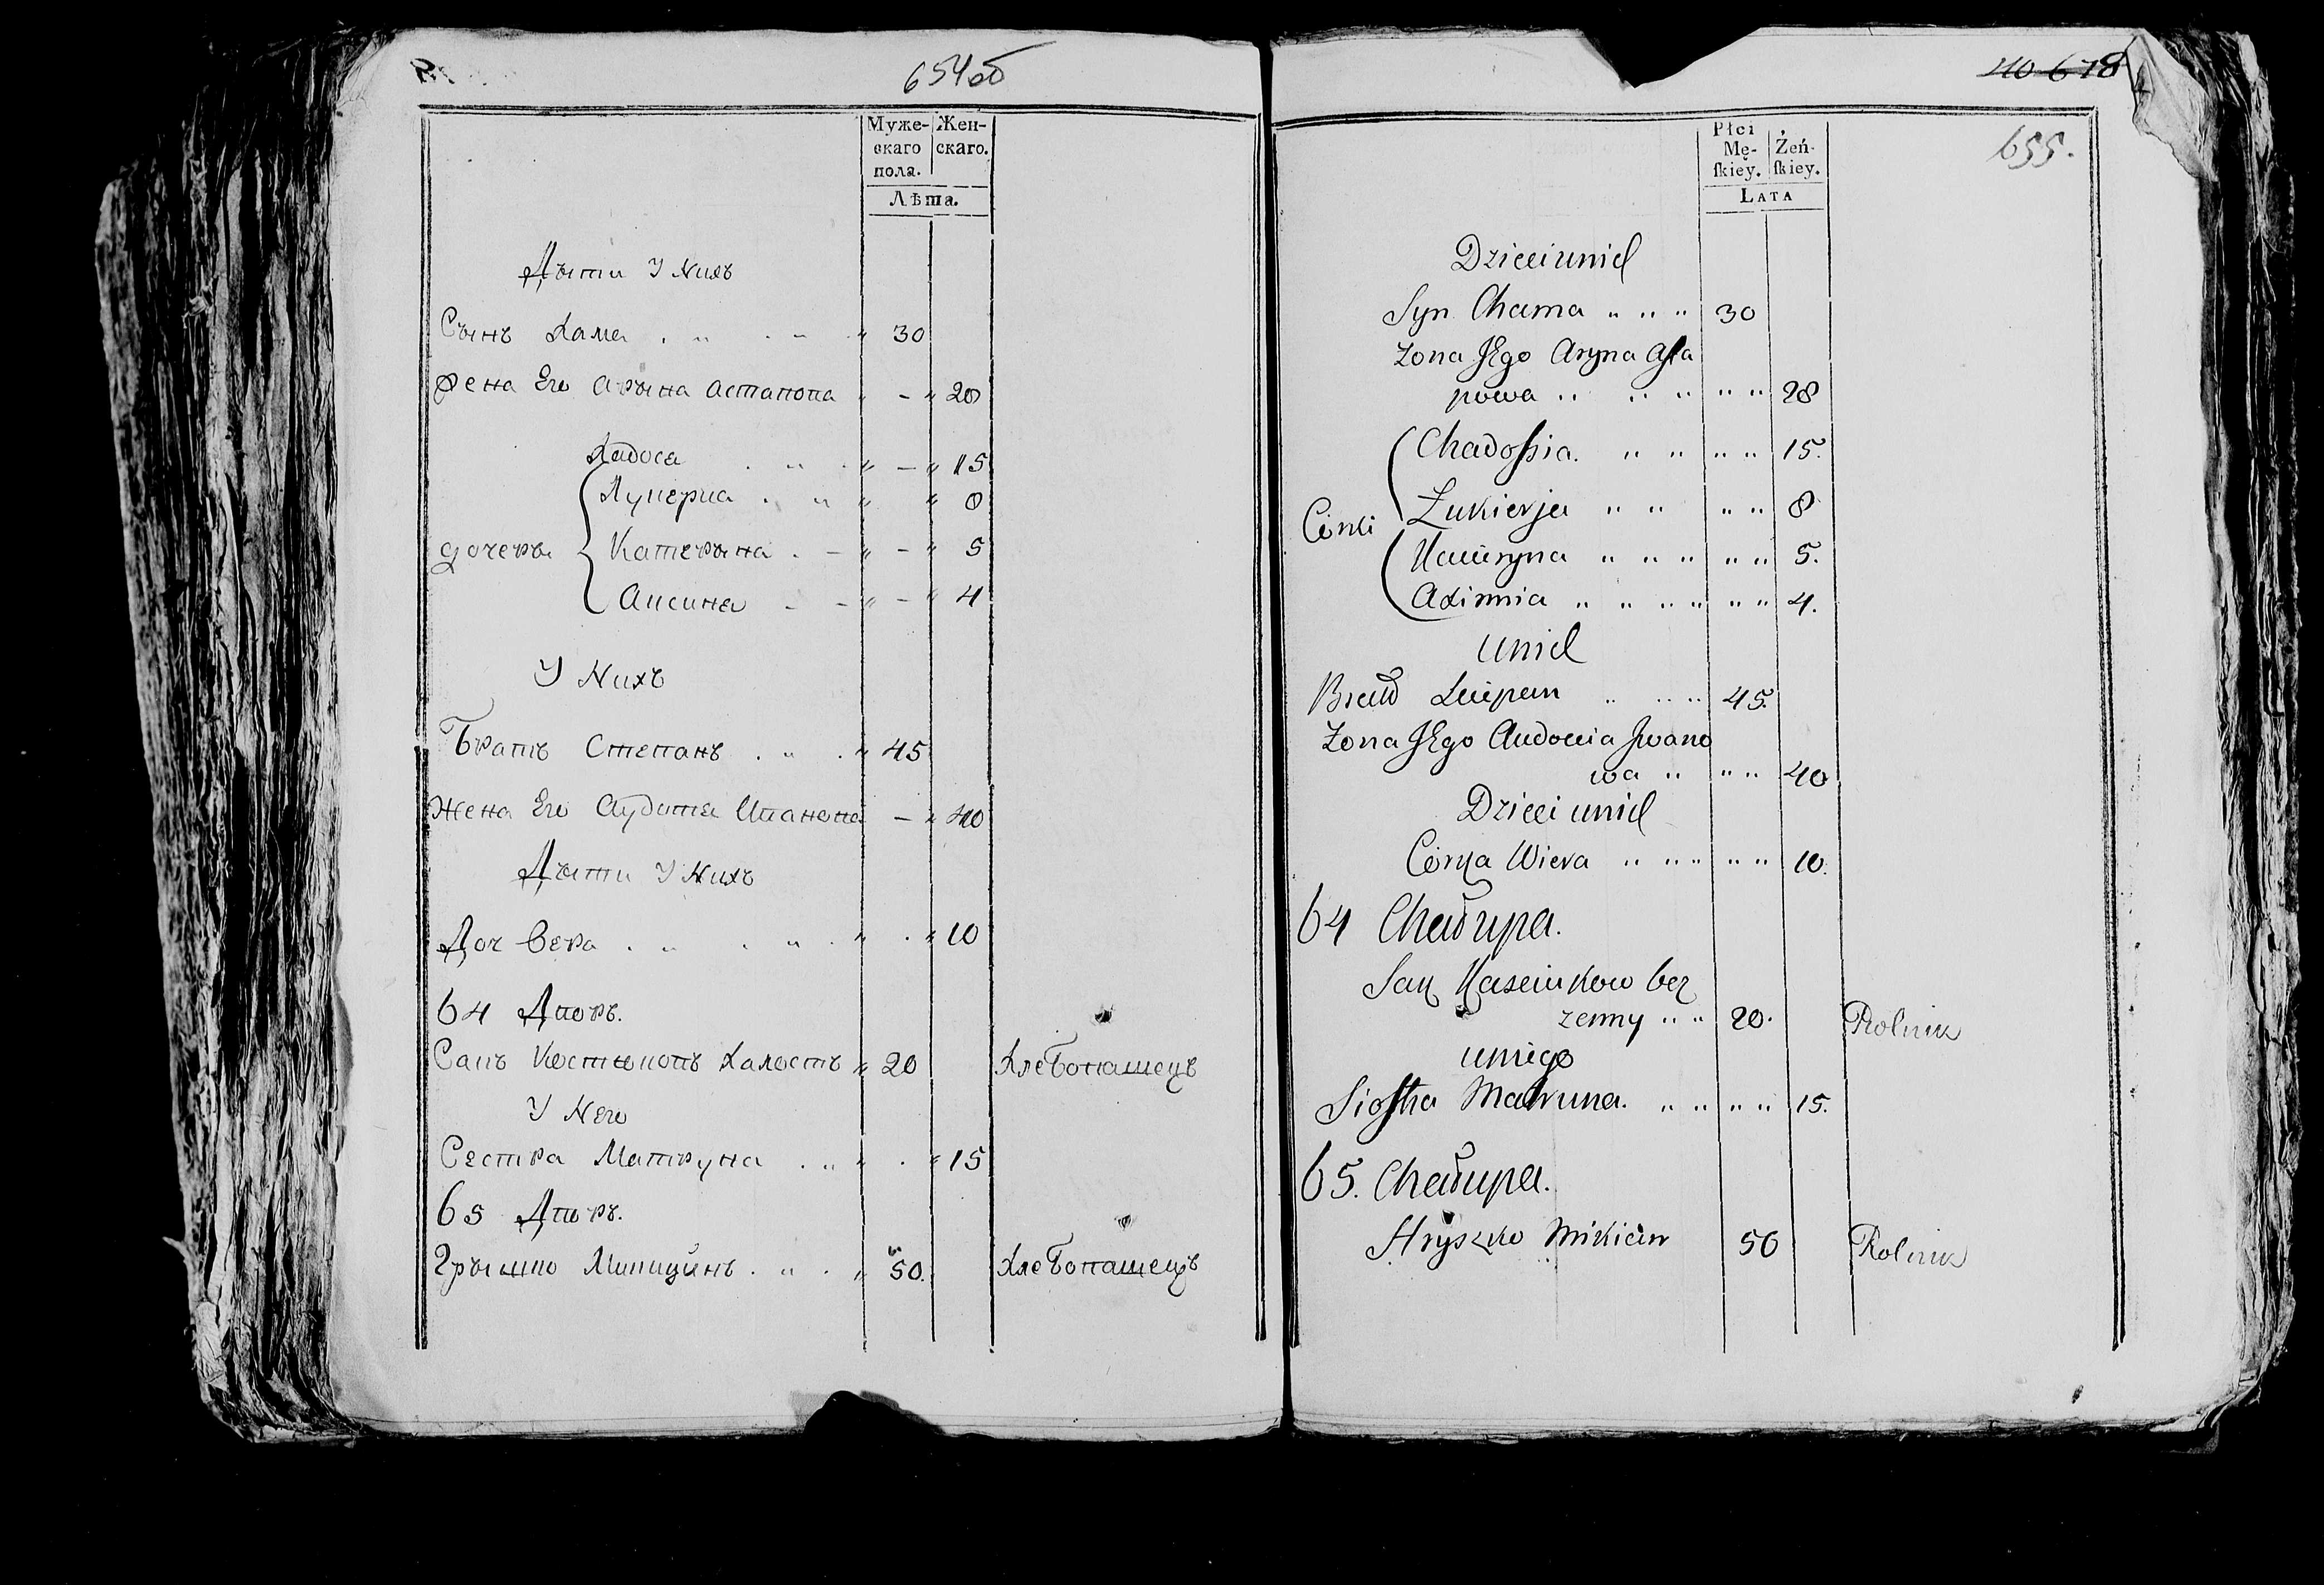 654об
Муже-
скаго
пола.
Жен-
скаго.
Лѣта.
Дъти У Нихъ
Сынъ Хама 30
Жена Его Арына Астапова 28
Хадоса 15
Лукериа 8
дочеры Катерына 5
Аксина 4
У Нихъ
Братъ Степанъ 45
Жена Его Аудотя Иванова 40
Дъти У Нихъ
Доч Вера 10
64 Дворъ.
Сакъ Холостъ 20 Хлебопашецъ
У Него
Сестра Матруна 15
65 Дворъ.
Грышко Микицинъ 50. Хлебопашецъ
655.
Płci
Mę-
ſkiey.
Żeń-
ſkiey.
Lata
Dzieci u nich
Syn Chama 30
Zona JEgo Aryna Asta
powa 28
Chadossia 15.
Corki Łukierja 8
Kacieryna 5.
Axinnia 4.
u nich
Brat Sciepan 45.
Zona JEgo Audocia Jwano
wa 40
Dzieci u nich
Córka Wiera 10.
64 Chałupa.
Sak bez
zenny 20. Rolnik
u niego
Siostra Matruna 15.
65. Chałupa.
Hryszko Mikicin 50 Rolnik